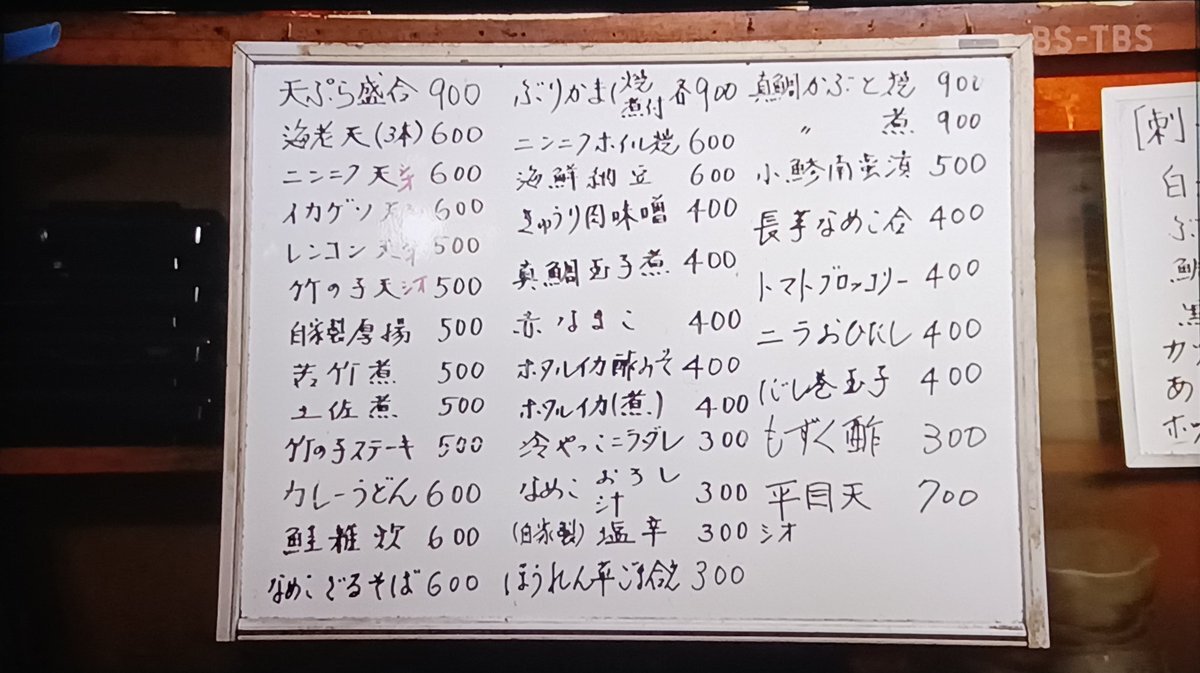 BS-TBS
天ぷら盛合 900
海老天(3本) 600
ニンニク天 600
イカゲソ天 600
レンコン 500
竹の子天シオ 500
自家製厚揚 500
若竹煮 500
土佐煮 500
竹の子ステーキ 500
カレーうどん 600
鮭雑炊 600
なめこざるそば 600
ぶりかま(焼 煮付 各900
ニンニクホイル焼 600
海鮮納豆 600
きゅうり肉味噌 400
真鯛玉子煮 400
赤なまこ 400
ホタルイカ酢みそ 400
ホタルイカ(煮) 400
冷やっこニラダレ 300
なめこ おろし 汁 300
(自家製)塩辛 300
ほうれん草ごま合え 300
真鯛かぶと焼 900
〃 煮 900
小鯵南蛮漬 500
長芋なめこ合 400
トマトブロッコリー 400
ニラおひたし 400
だし巻玉子 400
もずく酢 300
平目天 700
シオ
[刺
白
ぶ
鯛
黒
カ
あ
ホ